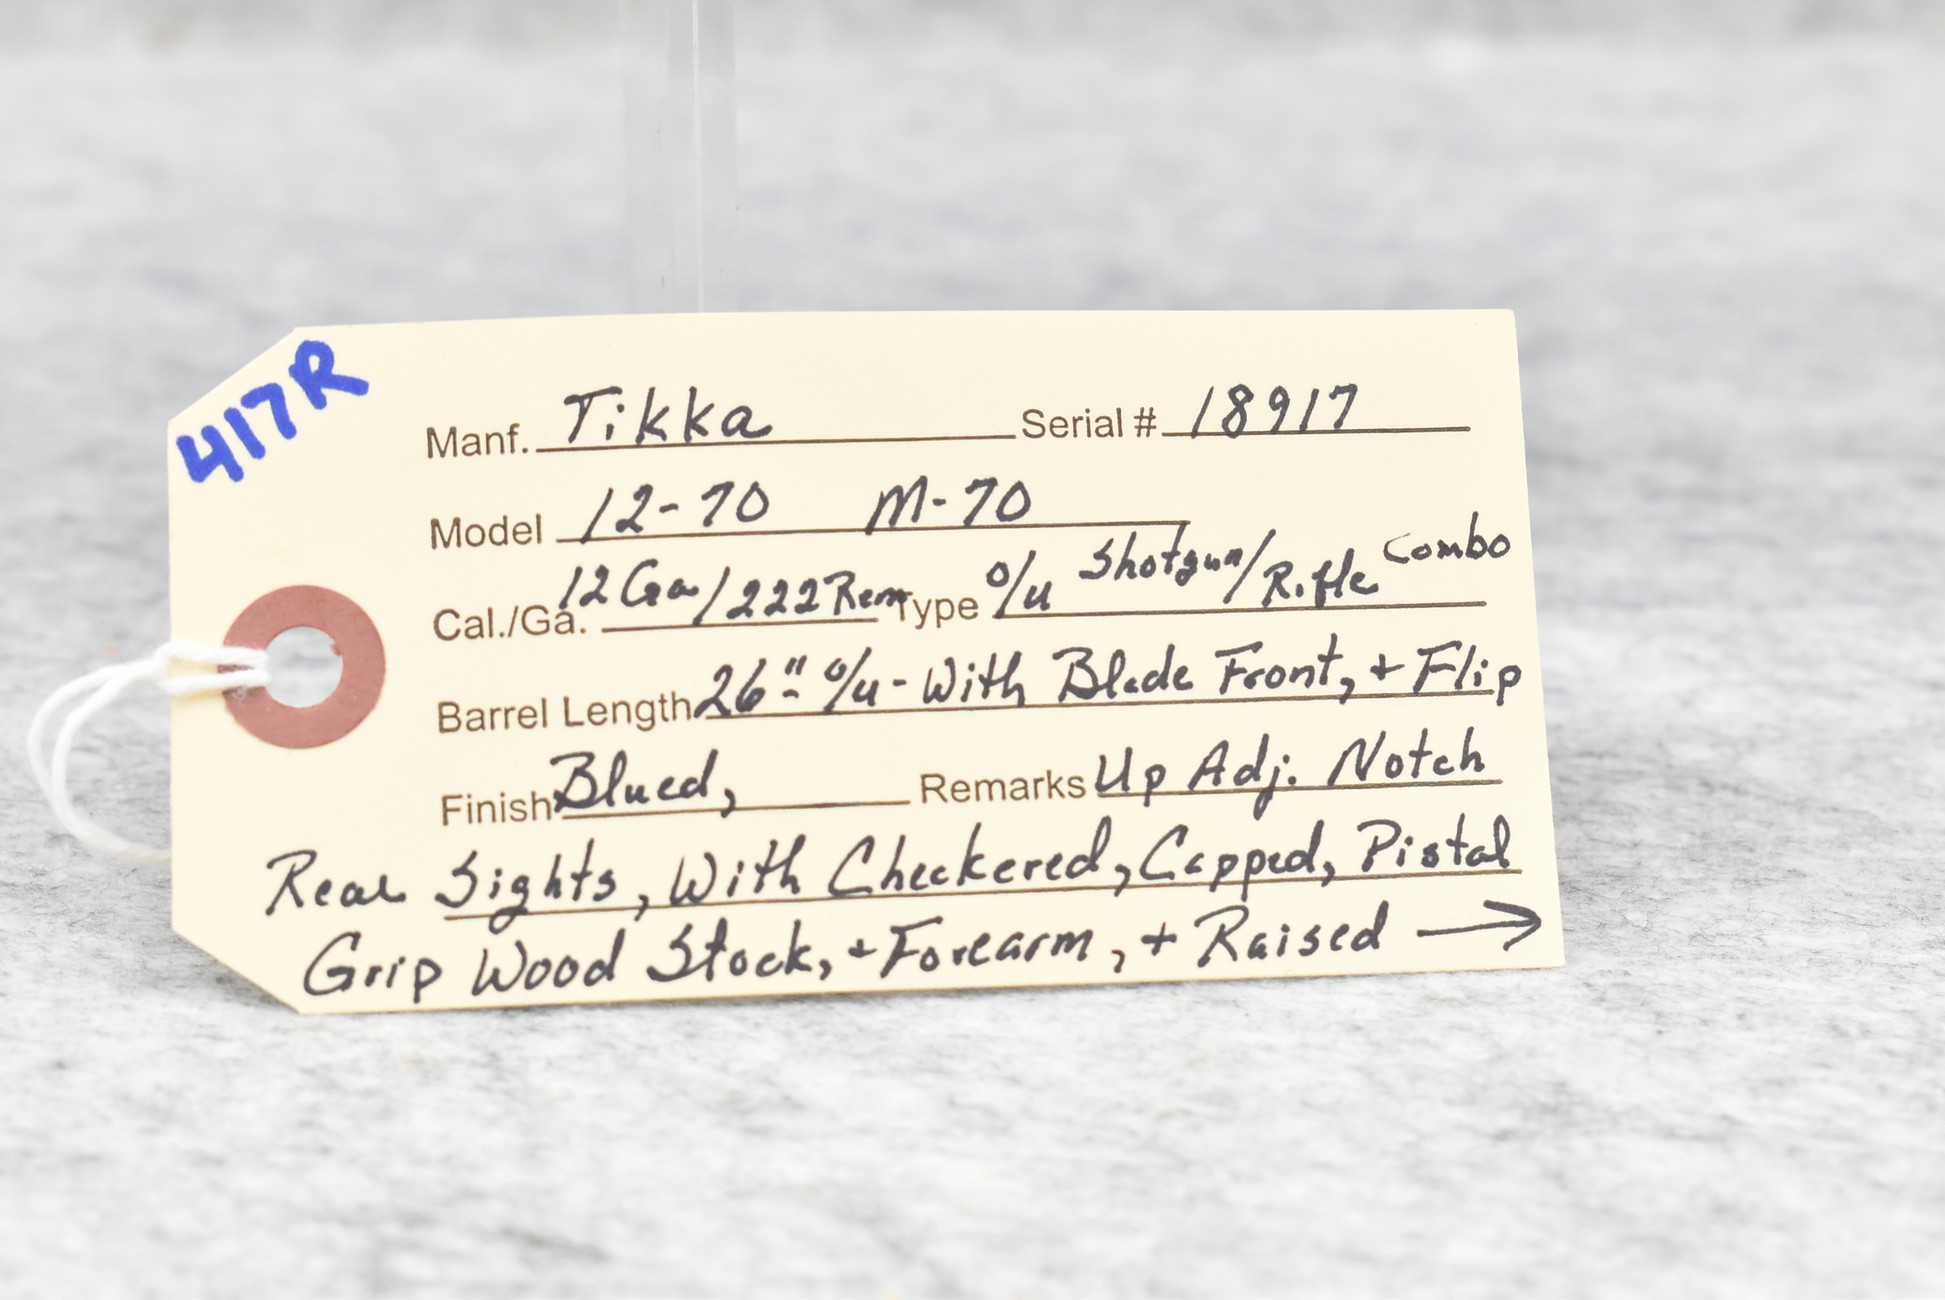 417R
Manf. Tikka Serial # 18917
Model 12-70 M-70
Cal./Ga. 12 Ga/222 Rem Type O/U Shotgun/Rifle Combo
Barrel Length 26" O/U - With Blade Front, + Flip
Finish Blued, Remarks Up Adj. Notch
Rear Sights, With Checkered, Capped, Pistal
Grip Wood Stock, + Forearm, + Raised →